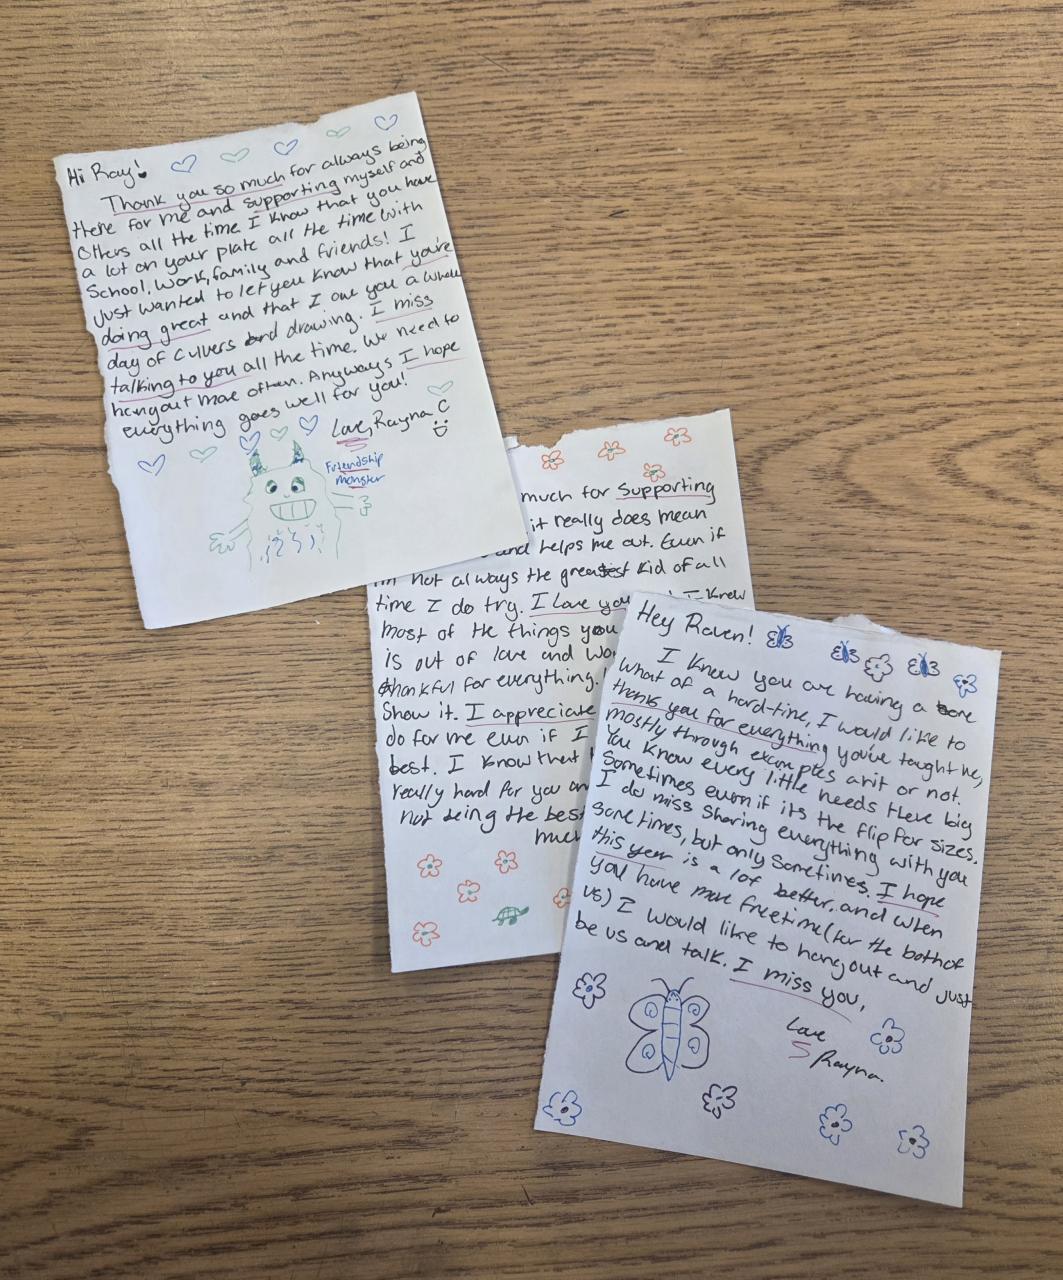 Hi Ray!
Thank you so much for always being
there for me and supporting myself and
others all the time. I know that you have
a lot on your plate all the time with
School, work, family and friends! I
just wanted to let you know that you're
doing great and that I owe you a whole
day of Culvers and drawing. I miss
talking to you all the time. We need to
hangout more often. Anyways I hope
everything goes well for you!
Love, Rayna C
Friendship
monster
much for supporting
it really does mean
and helps me out. Even if
not always the greatest kid of all
time I do try. I love you I know
most of the things you
is out of love and
thankful for everything.
Show it. I appreciate
do for me even if I
best. I know that
really hard for you
not being the best
much
Hey Raven!
I know you are having a
what of a hard-time, I would like to
thank you for everything you've taught me,
mostly through examples a bit or not.
You know every little needs there big
Sometimes even if its the flip for sizes.
I do miss sharing everything with you
sometimes, but only sometimes. I hope
this year is a lot better, and when
you have more freetime (for the both of
us) I would like to hangout and just
be us and talk. I miss you,
Love
Rayna.